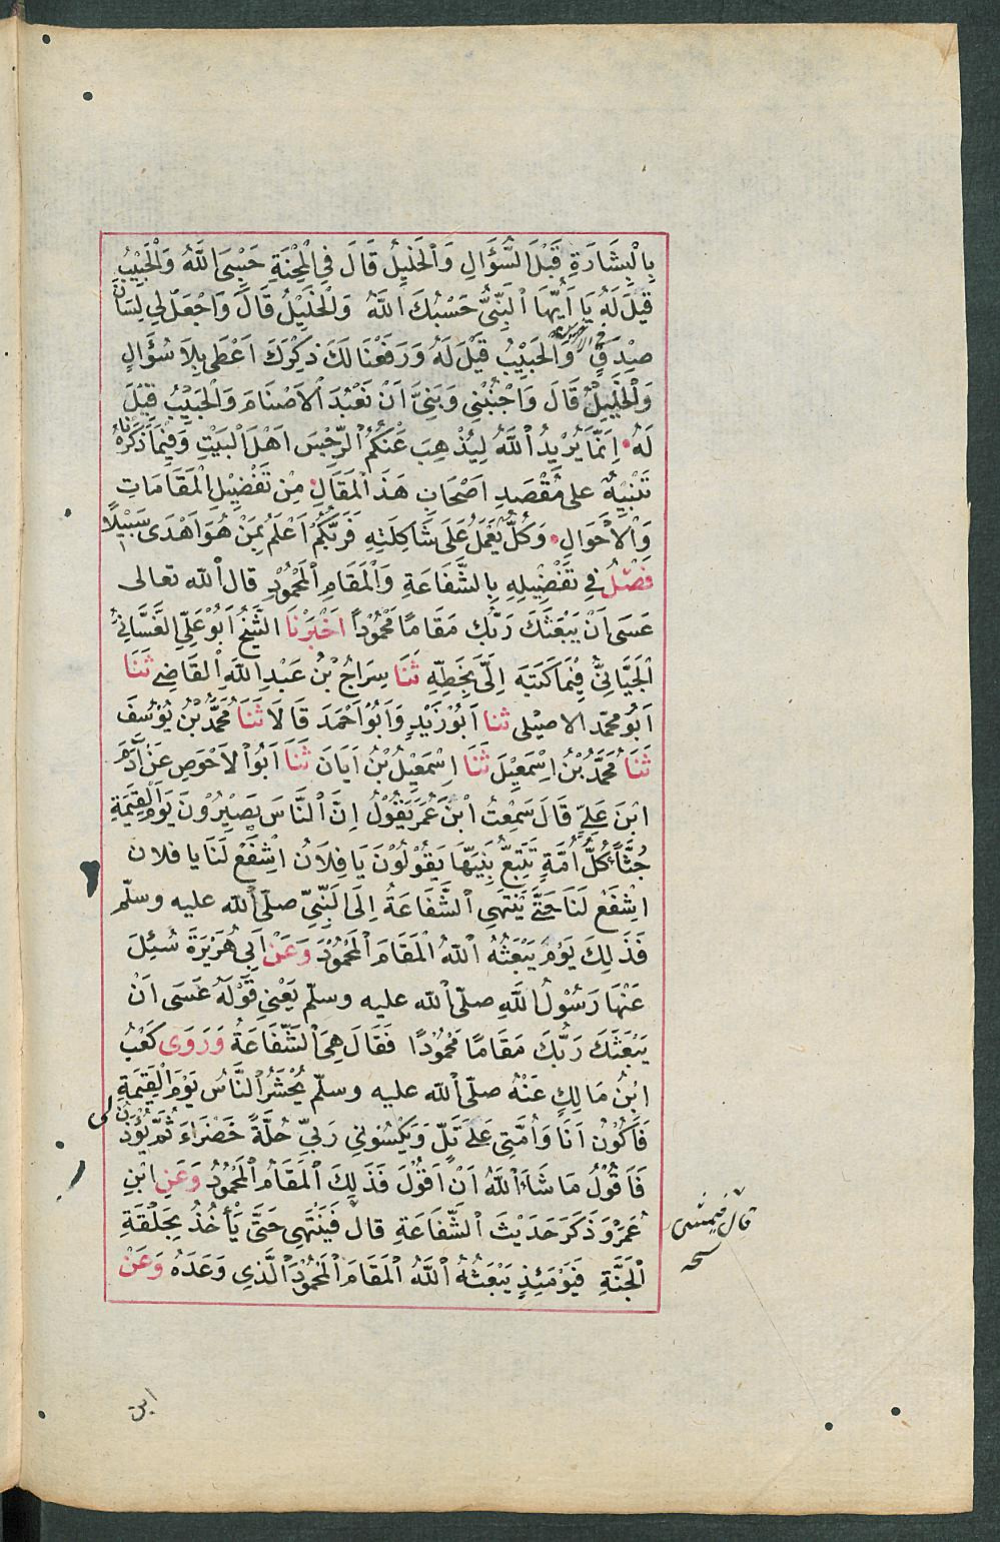 بِالْبِشَارَةِ قَبْلَ السُّؤَالِ وَالْخَلِيلُ قَالَ فِي الْمِحْنَةِ حَسْبِيَ اللَّهُ وَالْحَبِيْبُ
قِيْلَ لَهُ يَا أَيُّهَا النَّبِيُّ حَسْبُكَ اللَّهُ وَالْخَلِيْلُ قَالَ وَاجْعَلْ لِي لِسَانَ
صِدْقٍ وَالْحَبِيْبُ قِيْلَ لَهُ وَرَفَعْنَا لَكَ ذِكْرَكَ اَعْطَى بِلَا سُؤَالٍ
وَالْخَلِيْلُ قَالَ وَاجْنُبْنِي وَبَنِيَّ اَنْ نَعْبُدَ الْاَصْنَامَ وَالْحَبِيْبُ قِيْلَ
لَهُ اِنَّمَا يُرِيْدُ اللَّهُ لِيُذْهِبَ عَنْكُمُ الرِّجْسَ اَهْلَ الْبَيْتِ وَفِيْمَا ذَكَرْنَاهُ
تَنْبِيْهٌ عَلى مَقْصَدِ اَصْحَابِ هَذَا الْمَقَالِ مِنْ تَفْضِيْلِ الْمَقَامَاتِ
وَالْاَحْوَالِ وَكُلٌّ يَعْمَلُ عَلَى شَاكِلَتِهِ فَرَبُّكُمْ اَعْلَمُ بِمَنْ هُوَ اَهْدَى سَبِيْلًا
فَصْلٌ فِي تَفْضِيْلِهِ بِالشَّفَاعَةِ وَالْمَقَامِ الْمَحْمُوْدِ قال الله تعالى
عَسَى اَنْ يَبْعَثَكَ رَبُّكَ مَقَامًا مَحْمُوْدًا اَخْبَرْنَا الشَّيْخُ اَبُوْ عَلِيٍّ الْغَسَّانِيُّ
الْجَيَّانِيُّ فِيْمَا كَتَبَ اِلَىَّ بِخَطِّهِ ثَنَا سِرَاجُ بْنُ عَبْدِ اللَّهِ الْقَاضِي ثَنَا
اَبُوْ مُحَمَّد الاصيلى ثنا اَبُوْ زَيْدٍ وَاَبُوْ اَحْمَدَ قَالَا ثَنَا مُحَمَّدُ بْنُ يُوْسُفَ
ثَنَا مُحَمَّدُ بْنُ اِسْمَعِيْلَ ثَنَا اِسْمَعِيْلُ بْنُ اَبَانَ ثَنَا اَبُوْ الْاَحْوَصِ عَنْ آدَمَ
ابْنِ عَلِيٍّ قَالَ سَمِعْتُ ابْنَ عُمَرَ يَقُوْلُ اِنَّ النَّاسَ يَصِيْرُوْنَ يَوْمَ الْقِيٰمَةِ
جُثًا كُلُّ اُمَّةٍ تَتْبَعُ نَبِيَّهَا يَقُوْلُوْنَ يَا فِلَانُ اشْفَعْ لَنَا يا فلان
اشْفَعْ لَنَا حَتَّى يَنْتَهِيَ الشَّفَاعَةُ اِلَى النَّبِيِّ صلّى الله عليه وسلّم
فَذَلِكَ يَوْمَ يَبْعَثُهُ اللَّهُ الْمَقَامَ الْمَحْمُوْدَ وَعَنْ اَبِي هُرَيْرَةَ سُئِلَ
عَنْهَا رَسُوْلُ اللَّهِ صلّى الله عليه وسلّم يَعْنِي قَوْلَهُ عَسَى اَنْ
يَبْعَثَكَ رَبُّكَ مَقَامًا مَحْمُوْدًا فَقَالَ هِيَ الشَّفَاعَةُ وَرَوَى كَعْبُ
ابْنُ مَالِكٍ عَنْهُ صلّى الله عليه وسلّم يُحْشَرُ النَّاسُ يَوْمَ الْقِيٰمَةِ
فَاَكُوْنُ اَنَا وَاُمَّتِي عَلَى تَلٍّ وَيَكْسُوْنِي رَبِّي حُلَّةً خَضْرَاءَ ثُمَّ يُؤْذَنُ لى
فَاَقُوْلُ مَا شَاءَ اللَّهُ اَنْ اَقُوْلَ فَذَلِكَ الْمَقَامُ الْمَحْمُوْدُ وَعَنِ ابْنِ
عُمَرَ وَذَكَرَ حَدِيْثَ الشَّفَاعَةِ قال فَيَنْتَهِي حَتَّى يَأْخُذُ بِحَلْقَةِ
الْجَنَّةِ فَيَوْمَئِذٍ يَبْعَثُهُ اللَّهُ الْمَقَامَ الْمَحْمُوْدَ الَّذِى وَعَدَهُ وَعَنْ
قال فيمشى
نسخه
ابن